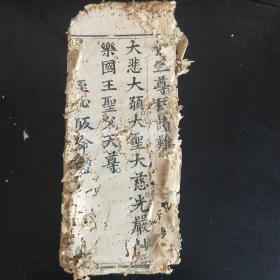 尊稱讚難
大悲大願大聖大慈光嚴妙
樂國王聖父天尊
至心皈命禮